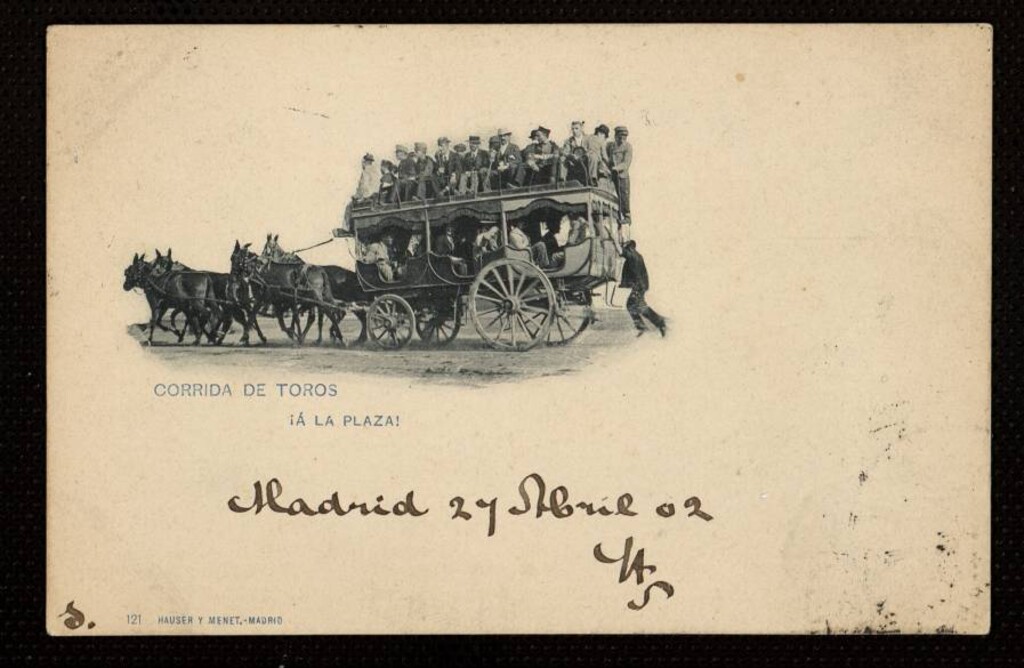 CORRIDA DE TOROS
¡Á LA PLAZA!
Madrid 27 Abril 02
S.
121 HAUSER Y MENET.-MADRID